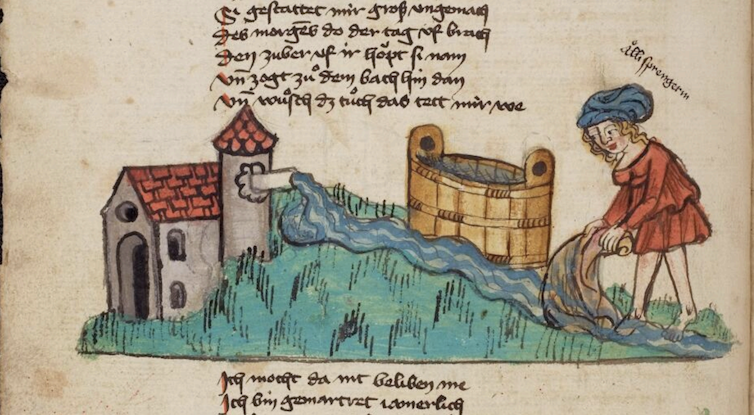 Si gestattet mir groß vngemach
Des morgēs do der tag vf brach
Den zuber vf ir höpt si nam
vn̄ zogt zů dem bach hin dan
vn̄ wůsch dz tůch das tett mir we
älli sprengerin
Ich mocht da nit beliben me
Ich bin gemartret iamerlich